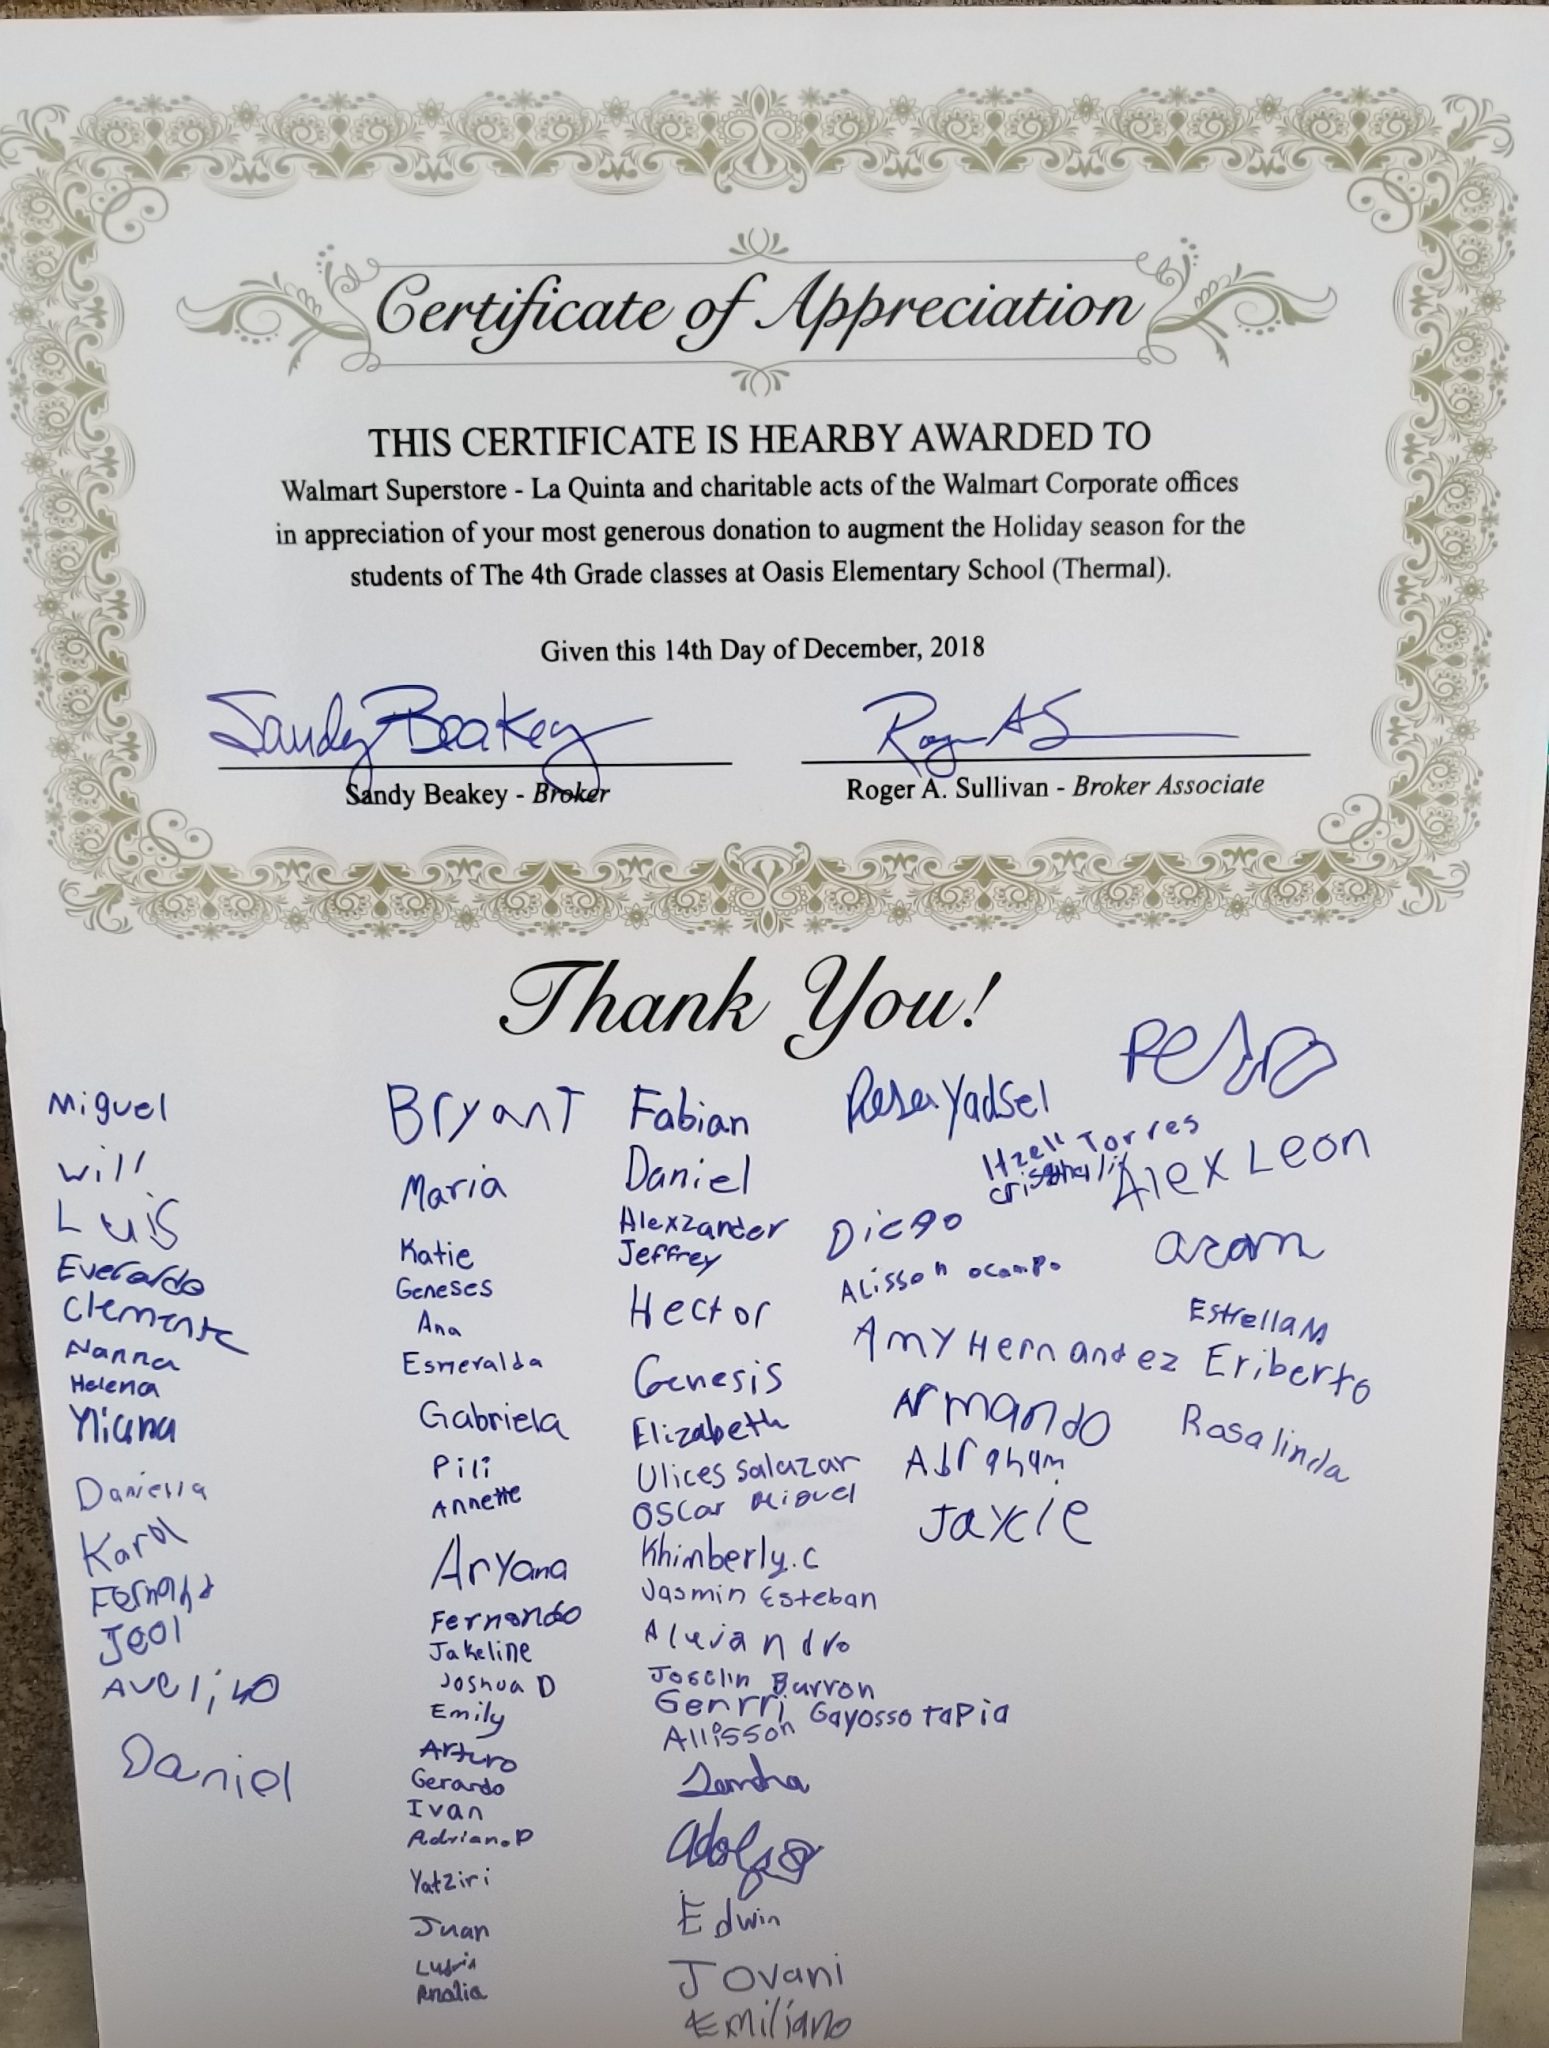 Certificate of Appreciation
THIS CERTIFICATE IS HEARBY AWARDED TO
Walmart Superstore - La Quinta and charitable acts of the Walmart Corporate offices
in appreciation of your most generous donation to augment the Holiday season for the
students of The 4th Grade classes at Oasis Elementary School (Thermal).
Given this 14th Day of December, 2018
Sandy Beakey
Sandy Beakey - Broker
Roger A. Sullivan - Broker Associate
Thank You!
Miguel
Will
Luis
Everardo
Clemente
Nanna
Helena
Yliana
Daniella
Karol
Jeol
Avelino
Daniel
Bryant
Maria
Katie
Geneses
Ana
Esmeralda
Gabriela
Pili
Annette
Aryana
Fernando
Jakeline
Joshua D
Emily
Arturo
Gerardo
Ivan
Adriano.P
Yatziri
Juan
Analia
Fabian
Daniel
Alexzander
Jeffrey
Hector
Genesis
Elizabeth
Ulices Salazar
Oscar Miguel
Khimberly.C
Jasmin Esteban
Josclin Barron
Genrri Gayosso Tapia
Allisson
Adolfo
Edwin
Jovani
Emiliano
Yadsel
Itzell Torres
Diego
Alisson Ocampo
Amy Hernandez
Armando
Abraham
Jaycie
Pedro
Alex Leon
Estrella M
Eriberto
Rosalinda